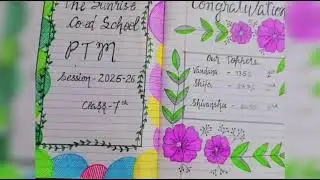 The Sunrise
Co-ed School
PTM
Session-2025-26
Class-7th
Congratulation
Our Toppers
Vandana
Shifa
Shivansha